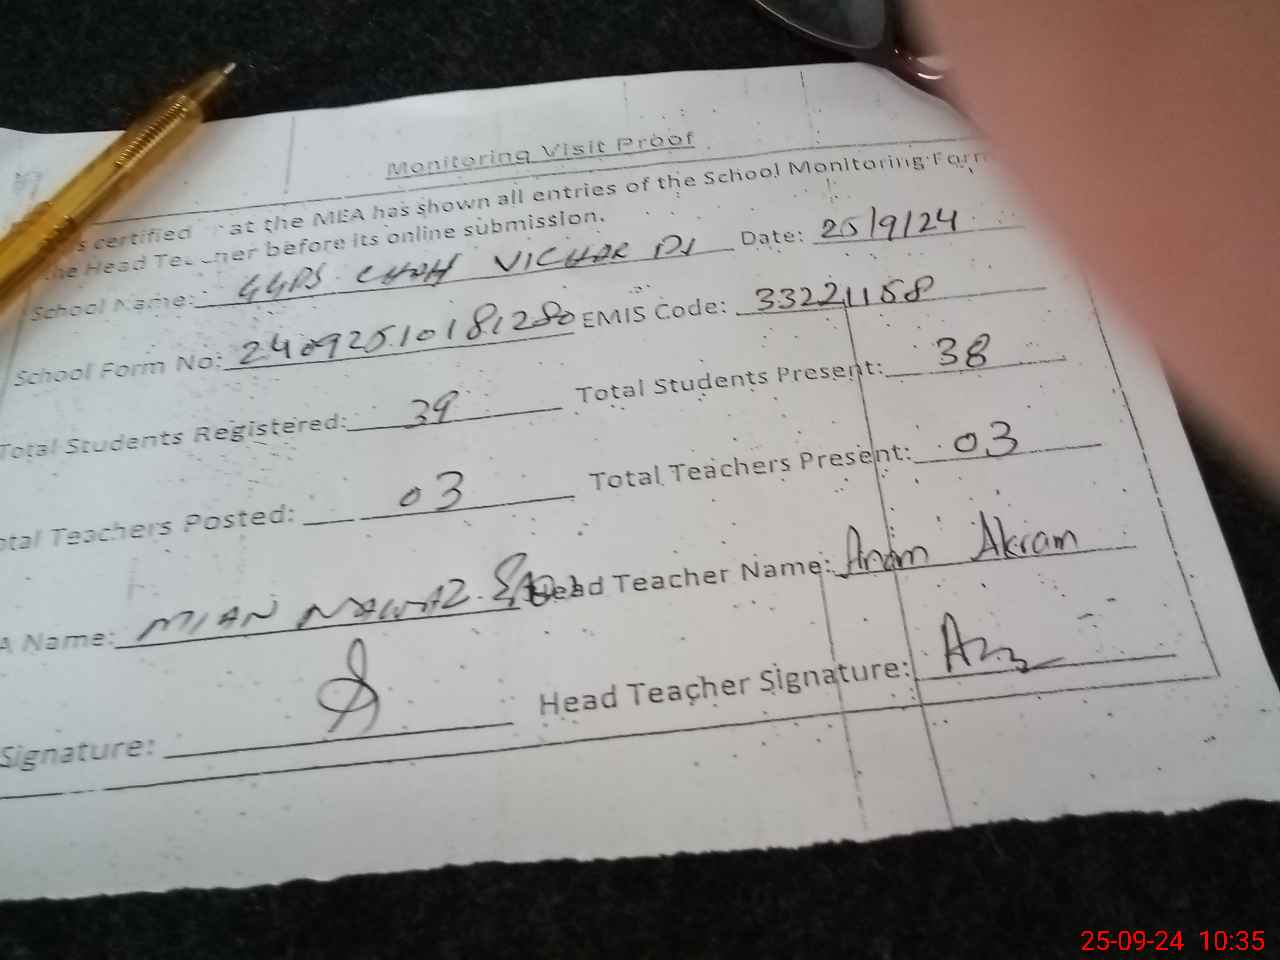 Monitoring Visit Proof
certified at the MEA has shown all entries of the School Monitoring Form
the Head Teacher before its online submission.
School Name: GGPS CHAH VICHAR DI Date: 25/9/24
School Form No: 24092510181280 EMIS Code: 33221158
Total Students Registered: 39 Total Students Present: 38
Total Teachers Posted: 03 Total Teachers Present: 03
A Name: MIAN NAWAZ Head Teacher Name: Anam Akram
Signature: Head Teacher Signature:
25-09-24 10:35